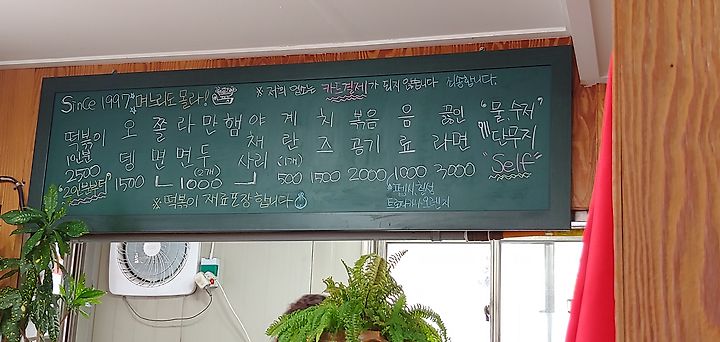 Since 1997 며느리도 몰라! ※ 저희 업소는 카드결제가 되지 않습니다 죄송합니다.
떡볶이 오 쫄 라 만 햄 야 계 치 볶음 음 끓인 "물, 수저"
1인분 뎅 면 면 두 채 란 즈 공기 료 라면 단무지
2500 (2개) 사리 (1개) "Self"
"2인분부터" 1500 1000 500 1500 2000 1000 3000
※ 떡볶이 재료 포장 합니다